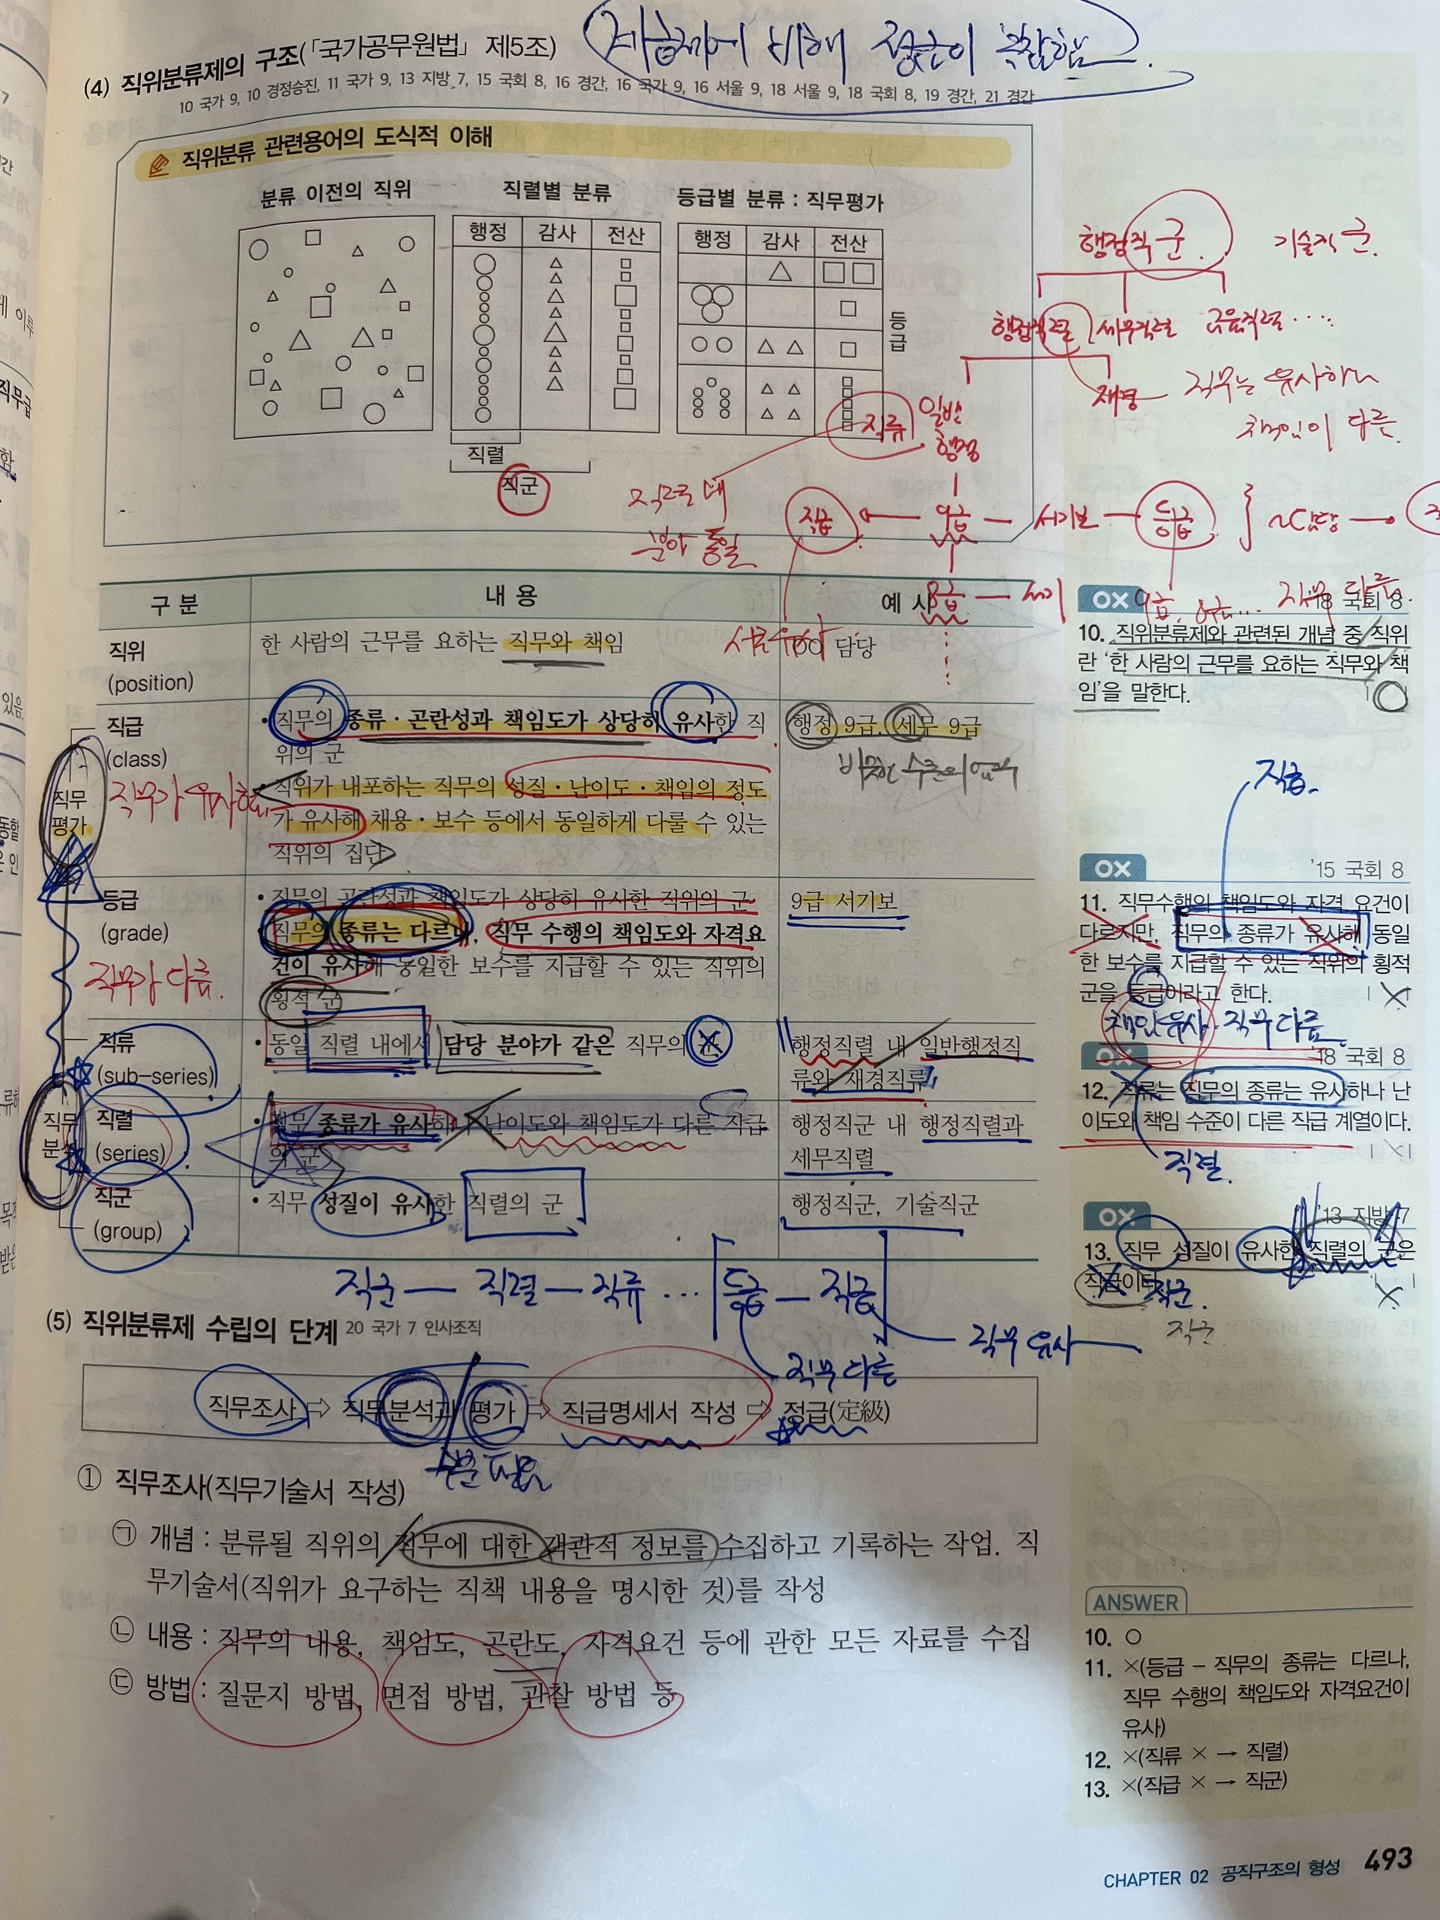 (4) 직위분류제의 구조(「국가공무원법」 제5조)
계급제에 비해
10 국가 9, 10 경정승진, 11 국가 9, 13 지방 7, 15 국회 8, 16 경간, 16 국가 9, 16 서울 9, 18 서울 9, 18 국회 8, 19 경간, 21 경간
직위분류 관련용어의 도식적 이해
분류 이전의 직위
직렬별 분류
행정 감사 전산
직렬
직군
등급별 분류 : 직무평가
행정 감사 전산
등급
행정직군. 기술직군.
행정직렬 세무직렬 교육직렬 ....
직류 일반행정 재경 직무는 유사하나
책임이 다름.
직렬 내
분야 동일
직급 9급 서기보 등급 ~담당
8급 서기
9급, 8급... 직무 다름.
구분 내용 예시
직위
(position)
한 사람의 근무를 요하는 직무와 책임
OO 담당
직급
(class)
• 직무의 종류·곤란성과 책임도가 상당히 유사한 직
위의 군
직위가 내포하는 직무의 성질·난이도·책임의 정도
가 유사해 채용·보수 등에서 동일하게 다룰 수 있는
직위의 집단
행정 9급, 세무 9급
비슷한 수준의 업무
직무
평가
직무가 유사함.
등급
(grade)
• 직무의 곤란성과 책임도가 상당히 유사한 직위의 군
• 직무의 종류는 다르나, 직무 수행의 책임도와 자격요
건이 유사해 동일한 보수를 지급할 수 있는 직위의
횡적 군
9급 서기보
직무가 다름.
직류
(sub-series)
• 동일 직렬 내에서 담당 분야가 같은 직무의 군
행정직렬 내 일반행정직
류와 재경직류
직무
분석
직렬
(series)
• 직무 종류가 유사하나 난이도와 책임도가 다른 직급
의 군
행정직군 내 행정직렬과
세무직렬
직군
(group)
• 직무 성질이 유사한 직렬의 군
행정직군, 기술직군
직군 — 직렬 — 직류 ... 등급 — 직급
직무 유사
직무 다름
(5) 직위분류제 수립의 단계 20 국가 7 인사조직
직무조사 ⇨ 직무분석과 평가 ⇨ 직급명세서 작성 ⇨ 정급(定級)
① 직무조사(직무기술서 작성)
㉠ 개념 : 분류될 직위의 직무에 대한 객관적 정보를 수집하고 기록하는 작업. 직
무기술서(직위가 요구하는 직책 내용을 명시한 것)를 작성
㉡ 내용 : 직무의 내용, 책임도, 곤란도, 자격요건 등에 관한 모든 자료를 수집
㉢ 방법 : 질문지 방법, 면접 방법, 관찰 방법 등
OX '18 국회 8
10. 직위분류제와 관련된 개념 중 직위
란 '한 사람의 근무를 요하는 직무와 책
임'을 말한다.
직급.
OX '15 국회 8
11. 직무수행의 책임도와 자격 요건이
다르지만, 직무의 종류가 유사해 동일
한 보수를 지급할 수 있는 직위의 횡적
군을 등급이라고 한다.
책임유사 직무다름
OX '18 국회 8
12. 직류는 직무의 종류는 유사하나 난
이도와 책임 수준이 다른 직급 계열이다.
직렬.
OX '13 지방 7
13. 직무 성질이 유사한 직렬의 군은
직급이다.
직군.
직군
ANSWER
10. ○
11. ×(등급 – 직무의 종류는 다르나,
직무 수행의 책임도와 자격요건이
유사)
12. ×(직류 × → 직렬)
13. ×(직급 × → 직군)
CHAPTER 02 공직구조의 형성 493